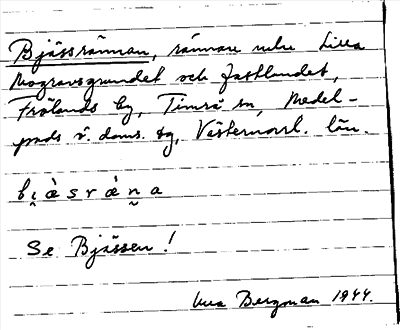 Bjässrännan, rännan mln Lilla
Mogravsgrundet och fastlandet,
Frölands by, Timrå sn, Medel-
pads ö. doms. tg, Västernorrl. län.
bi̯àsràn̯a
Se Bjässen!
Bergman 1944.